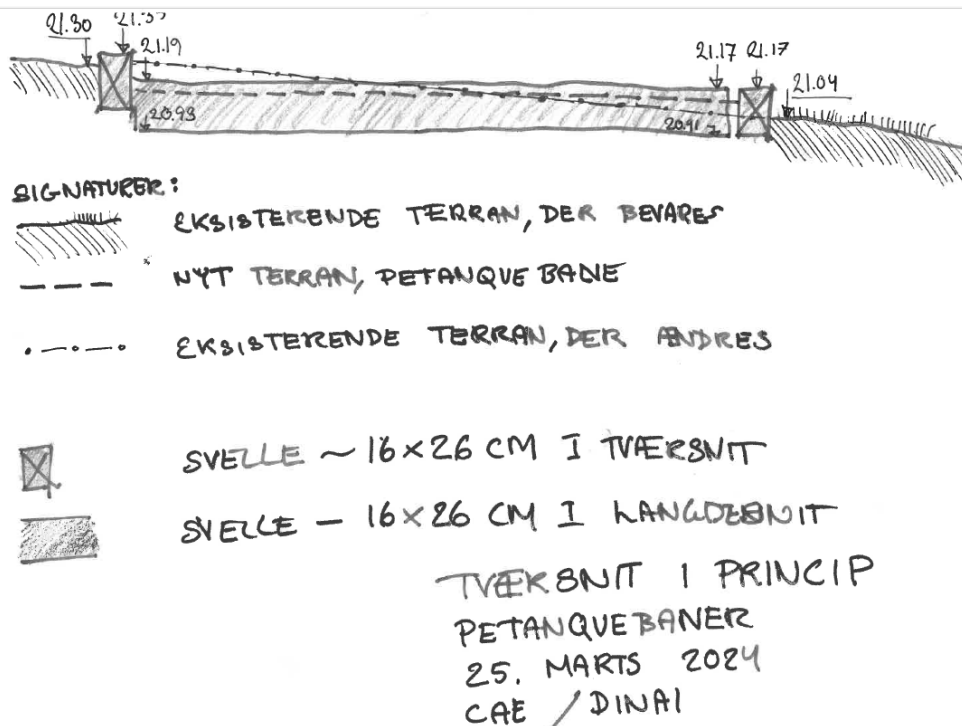 21.30
21.35
21.19
21.17 21.17
21.04
20.93
20.91
SIGNATURER:
EKSISTERENDE TERRAN, DER BEVARES
NYT TERRAN, PETANQUE BANE
EKSISTERENDE TERRAN, DER ÆNDRES
SVELLE ~ 16×26 CM I TVÆRSNIT
SVELLE – 16×26 CM I LANGDESNIT
TVÆRSNIT I PRINCIP
PETANQUEBANER
25. MARTS 2024
CAE / DINAI